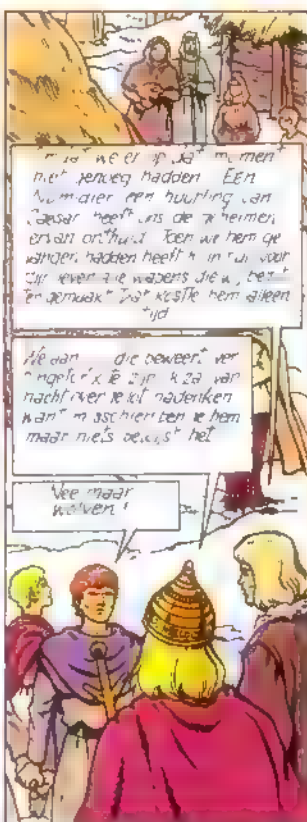 we er op dat moment
niet genoeg hadden. Een
Numidier een huurling van
Caesar heeft ons de geheimen
ervan onthuld. Toen we hem ge
vangen hadden heeft h in ruil voor
zijn leven alle wapens die
gemaakt Dat kostte hem alleen
tijd
die beweert ver
te zijn ik zal van
nacht over je lot nadenken
want misschien ben je hem
maar niets bewijst het
Nee maar
wolven !